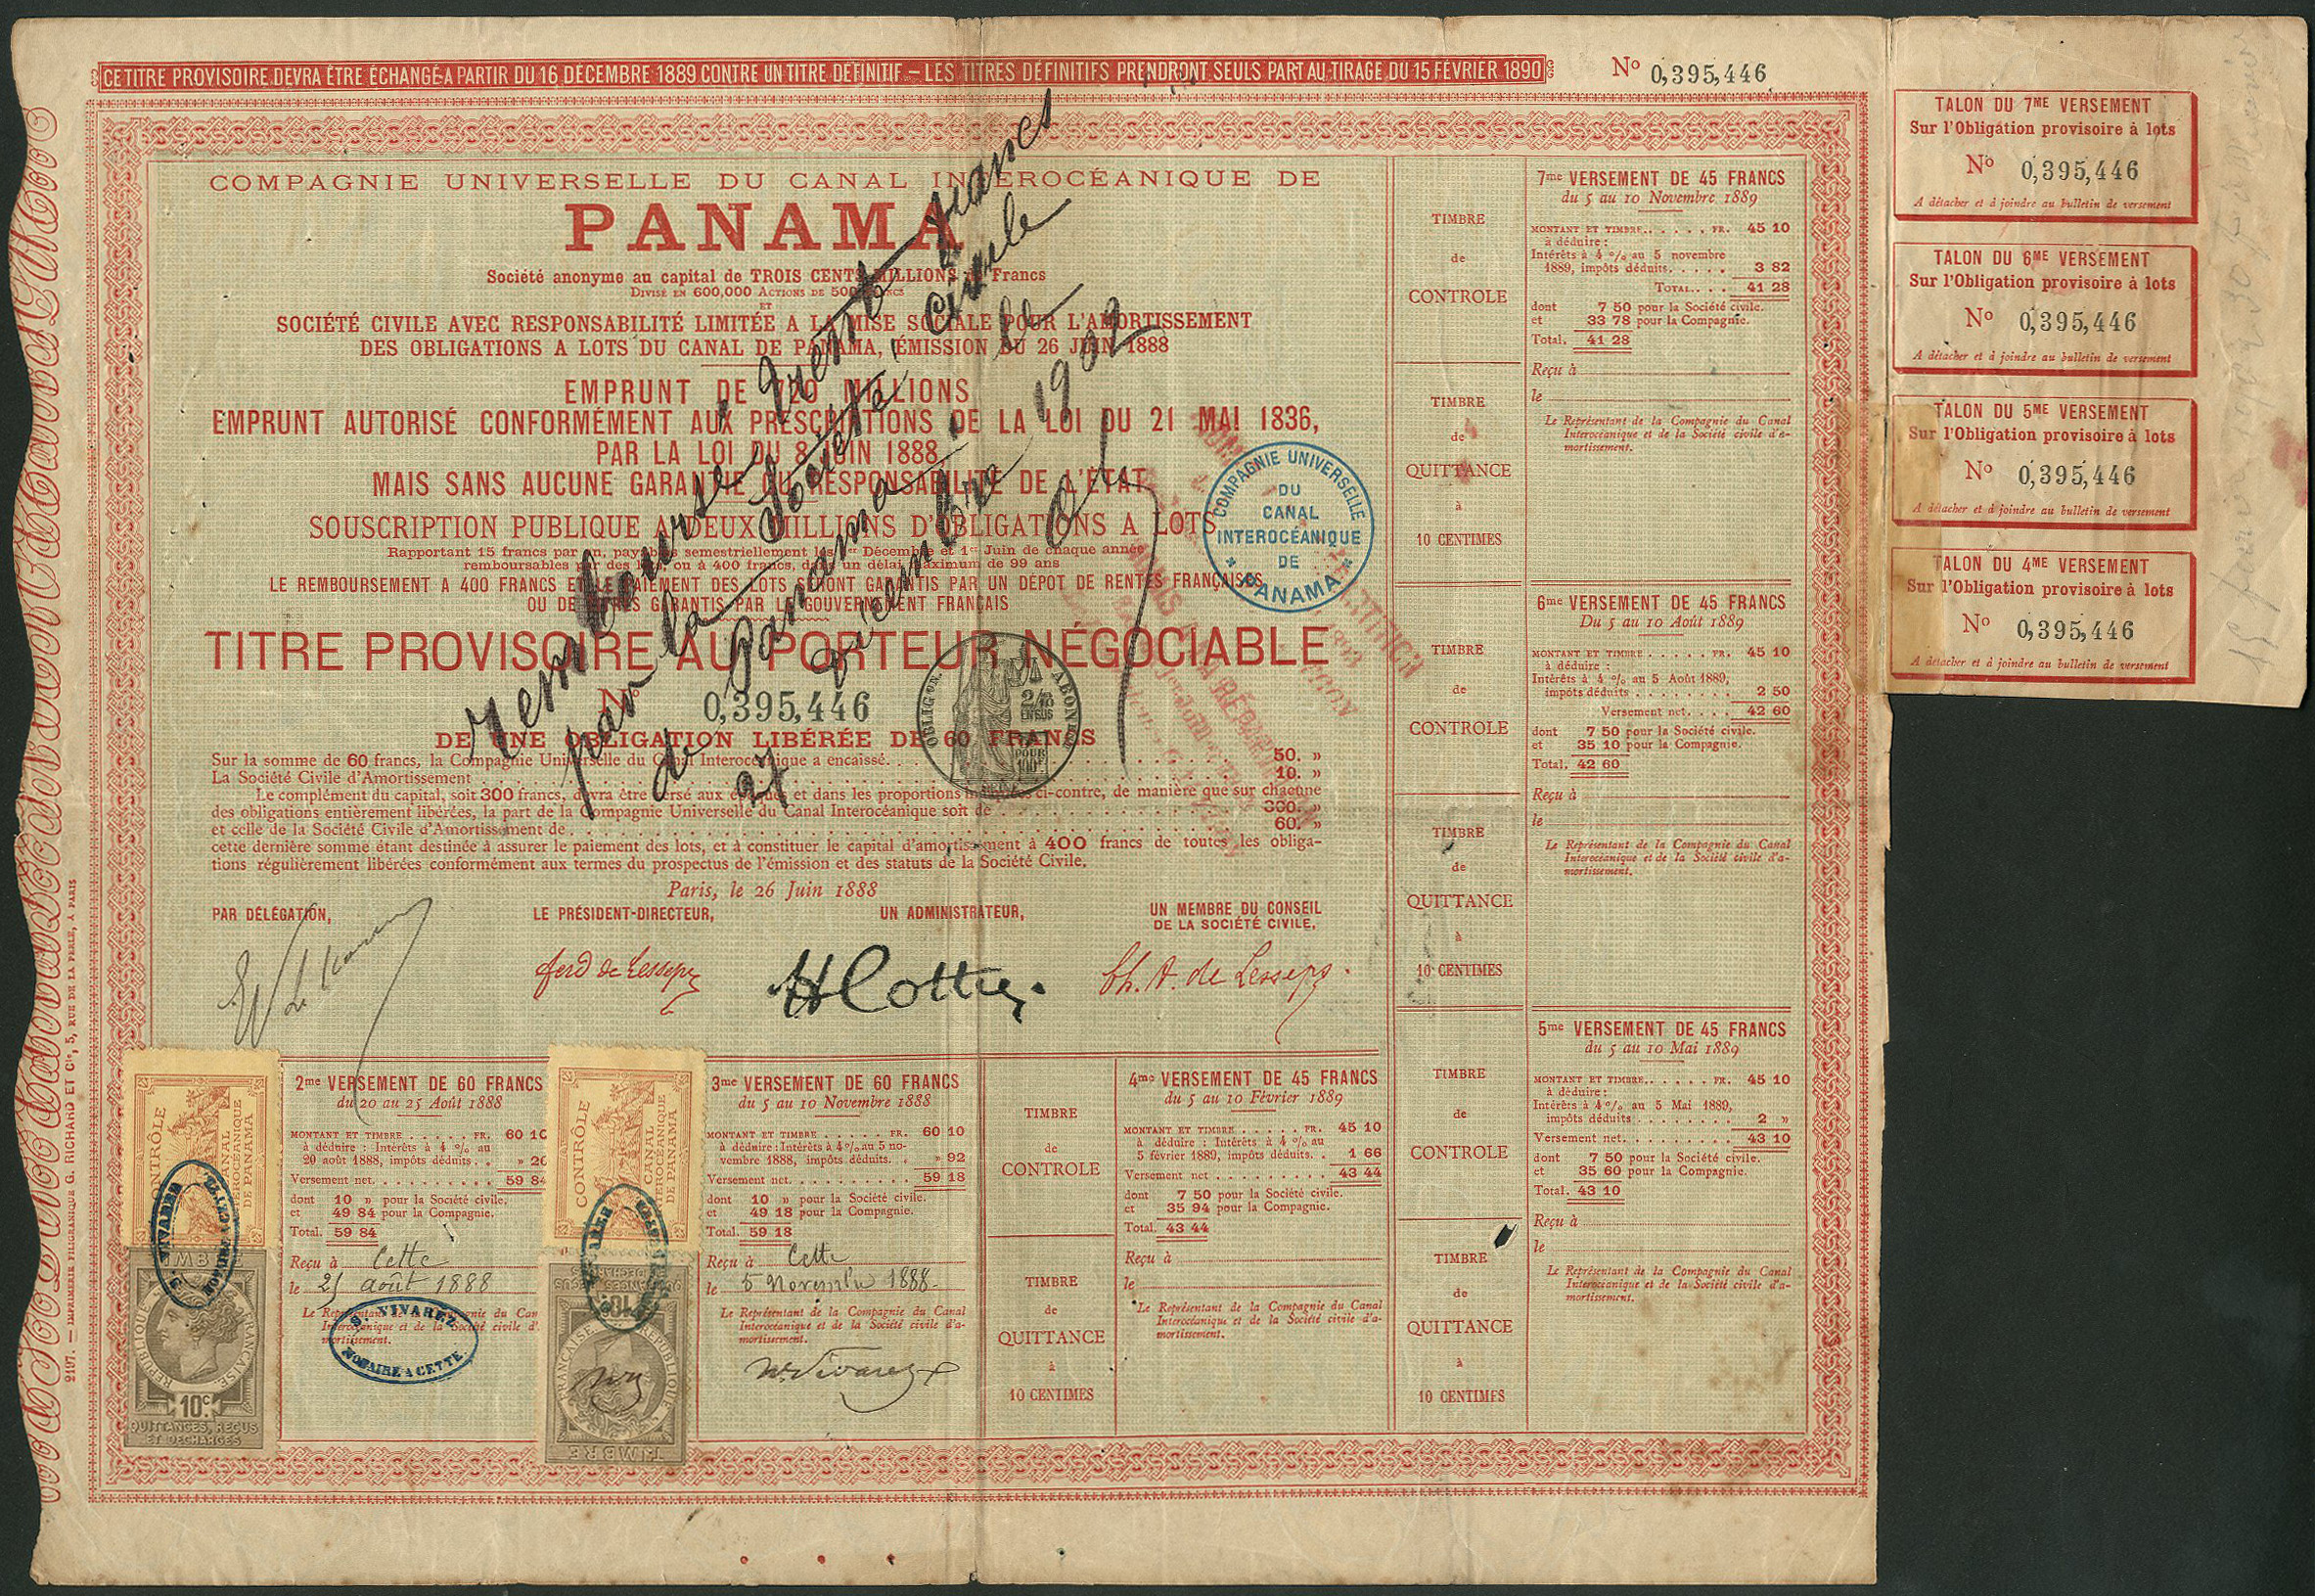 CE TITRE PROVISOIRE DEVRA ÊTRE ÉCHANGÉ A PARTIR DU 16 DÉCEMBRE 1889 CONTRE UN TITRE DÉFINITIF. — LES TITRES DÉFINITIFS PRENDRONT SEULS PART AU TIRAGE DU 15 FÉVRIER 1890
No 0,395,446
COMPAGNIE UNIVERSELLE DU CANAL INTEROCÉANIQUE DE
PANAMA
Société anonyme au capital de TROIS CENTS MILLIONS de Francs
DIVISÉ EN 600,000 ACTIONS DE 500 FRANCS
ET
SOCIÉTÉ CIVILE AVEC RESPONSABILITÉ LIMITÉE A LA MISE SOCIALE POUR L'AMORTISSEMENT
DES OBLIGATIONS A LOTS DU CANAL DE PANAMA, ÉMISSION DU 26 JUIN 1888
EMPRUNT DE 720 MILLIONS
EMPRUNT AUTORISÉ CONFORMÉMENT AUX PRESCRIPTIONS DE LA LOI DU 21 MAI 1836,
PAR LA LOI DU 8 JUIN 1888,
MAIS SANS AUCUNE GARANTIE OU RESPONSABILITÉ DE L'ÉTAT
SOUSCRIPTION PUBLIQUE A DEUX MILLIONS D'OBLIGATIONS A LOTS
Rapportant 15 francs par an, payables semestriellement les 1er Décembre et 1er Juin de chaque année
remboursables par des lots, ou à 400 francs, dans un délai maximum de 99 ans
LE REMBOURSEMENT A 400 FRANCS ET LE PAIEMENT DES LOTS SERONT GARANTIS PAR UN DÉPOT DE RENTES FRANÇAISES
OU DE TITRES GARANTIS PAR LE GOUVERNEMENT FRANÇAIS
TITRE PROVISOIRE AU PORTEUR NÉGOCIABLE
No 0,395,446
DE UNE OBLIGATION LIBÉRÉE DE 60 FRANCS
Sur la somme de 60 francs, la Compagnie Universelle du Canal Interocéanique a encaissé. . . . 50. »
La Société Civile d'Amortissement . . . . 10. »
Le complément du capital, soit 300 francs, devra être versé aux époques et dans les proportions indiquées ci-contre, de manière que sur chacune
des obligations entièrement libérées, la part de la Compagnie Universelle du Canal Interocéanique soit de . . . . 300. »
et celle de la Société Civile d'Amortissement de . . . . 60. »
cette dernière somme étant destinée à assurer le paiement des lots, et à constituer le capital d'amortissement à 400 francs de toutes les obliga-
tions régulièrement libérées conformément aux termes du prospectus de l'émission et des statuts de la Société Civile.
Paris, le 26 Juin 1888
PAR DÉLÉGATION,
LE PRÉSIDENT-DIRECTEUR,
UN ADMINISTRATEUR,
UN MEMBRE DU CONSEIL
DE LA SOCIÉTÉ CIVILE,
Ferd de Lesseps
H Cottu
Ch. A. de Lesseps.
Remboursé trente francs
par la Société Civile
de Panama, le
27 décembre 1902
COMPAGNIE UNIVERSELLE
DU
CANAL
INTEROCÉANIQUE
DE
PANAMA
2197. — IMPRIMERIE FILIGRANIQUE G. RICHARD ET Cie, 5, RUE DE LA PERLE, A PARIS
CONTRÔLE
CANAL
INTEROCÉANIQUE
DE PANAMA
S. VIVAREZ
TIMBRE
RÉPUBLIQUE FRANÇAISE.
10c.
QUITTANCES, REÇUS
ET DÉCHARGES
2me VERSEMENT DE 60 FRANCS
du 20 au 25 Août 1888
MONTANT ET TIMBRE . . . . . FR. 60 10
à déduire : Intérêts à 4 % au
20 août 1888, impôts déduits. . » 26
Versement net. . . . . 59 84
dont 10 » pour la Société civile.
et 49 84 pour la Compagnie.
Total. 59 84
Reçu à Cette
le 25 août 1888
Le Représentant de la Compagnie du Can
Interocéanique et de la Société civile d'
mortissement.
S. VIVAREZ
NOTAIRE A CETTE
CONTRÔLE
CANAL
INTEROCÉANIQUE
DE PANAMA
10c.
RÉPUBLIQUE FRANÇAISE.
TIMBRE
3me VERSEMENT DE 60 FRANCS
du 5 au 10 Novembre 1888
MONTANT ET TIMBRE . . . . . FR. 60 10
à déduire : Intérêts à 4 % au 5 no-
vembre 1888, impôts déduits. . » 92
Versement net. . . . . 59 18
dont 10 » pour la Société civile.
et 49 18 pour la Compagnie.
Total. 59 18
Reçu à Cette
le 5 Novembre 1888
Le Représentant de la Compagnie du Canal
Interocéanique et de la Société civile d'a-
mortissement.
TIMBRE
de
CONTROLE
TIMBRE
de
QUITTANCE
à
10 CENTIMES
4me VERSEMENT DE 45 FRANCS
du 5 au 10 Février 1889
MONTANT ET TIMBRE . . . . . FR. 45 10
à déduire : Intérêts à 4 % au
5 février 1889, impôts déduits. . 1 66
Versement net . . . . . 43 44
dont 7 50 pour la Société civile.
et 35 94 pour la Compagnie.
Total. 43 44
Reçu à
le
Le Représentant de la Compagnie du Canal
Interocéanique et de la Société civile d'a-
mortissement.
TIMBRE
de
CONTROLE
TIMBRE
de
QUITTANCE
à
10 CENTIMES
7me VERSEMENT DE 45 FRANCS
du 5 au 10 Novembre 1889
MONTANT ET TIMBRE. . . . . . FR. 45 10
à déduire :
Intérêts à 4 % au 5 novembre
1889, impôts déduits. . . . . 3 82
TOTAL. . . . 41 28
dont 7 50 pour la Société civile.
et 33 78 pour la Compagnie.
Total. 41 28
Reçu à
le
Le Représentant de la Compagnie du Canal
Interocéanique et de la Société civile d'a-
mortissement.
TIMBRE
de
CONTROLE
TIMBRE
de
QUITTANCE
à
10 CENTIMES
6me VERSEMENT DE 45 FRANCS
Du 5 au 10 Août 1889
MONTANT ET TIMBRE . . . . . FR. 45 10
à déduire :
Intérêts à 4 % au 5 Août 1889,
impôts déduits . . . . . 2 50
Versement net. . . . 42 60
dont 7 50 pour la Société civile.
et 35 10 pour la Compagnie.
Total. 42 60
Reçu à
le
Le Représentant de la Compagnie du Canal
Interocéanique et de la Société civile d'a-
mortissement.
TIMBRE
de
CONTROLE
TIMBRE
de
QUITTANCE
à
10 CENTIMES
5me VERSEMENT DE 45 FRANCS
du 5 au 10 Mai 1889
MONTANT ET TIMBRE. . . . . . FR. 45 10
à déduire :
Intérêts à 4 % au 5 Mai 1889,
impôts déduits . . . . . 2 »
Versement net. . . . . 43 10
dont 7 50 pour la Société civile.
et 35 60 pour la Compagnie.
Total. 43 10
Reçu à
le
Le Représentant de la Compagnie du Canal
Interocéanique et de la Société civile d'a-
mortissement.
TALON DU 7ME VERSEMENT
Sur l'Obligation provisoire à lots
No 0,395,446
A détacher et à joindre au bulletin de versement
TALON DU 6ME VERSEMENT
Sur l'Obligation provisoire à lots
No 0,395,446
A détacher et à joindre au bulletin de versement
TALON DU 5ME VERSEMENT
Sur l'Obligation provisoire à lots
No 0,395,446
A détacher et à joindre au bulletin de versement
TALON DU 4ME VERSEMENT
Sur l'Obligation provisoire à lots
No 0,395,446
A détacher et à joindre au bulletin de versement